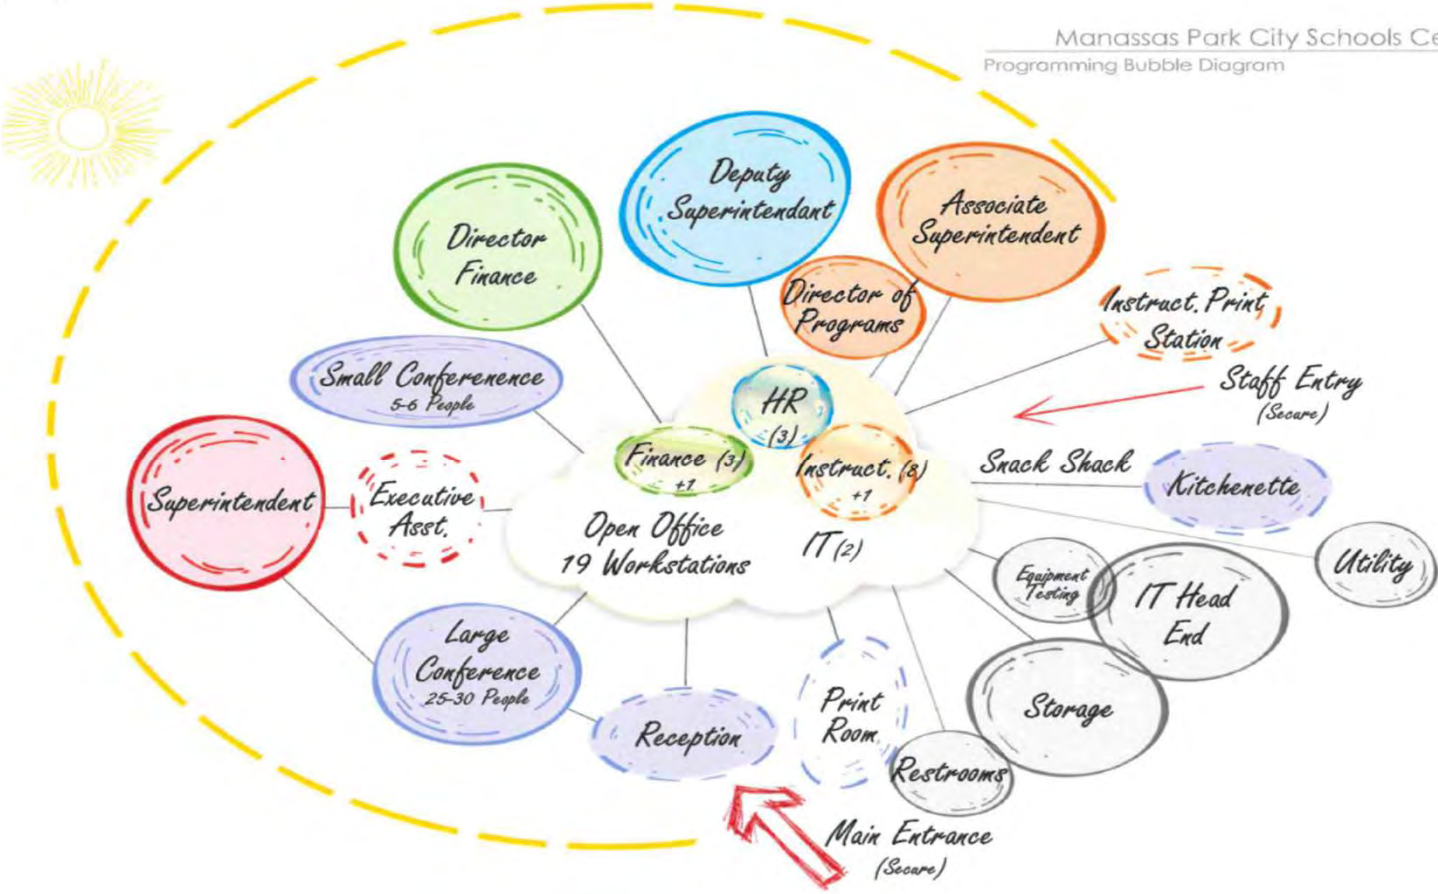 Manassas Park City Schools Ce
Programming Bubble Diagram
Deputy
Superintendant
Associate
Superintendent
Director
Finance
Director of
Programs
Instruct. Print
Station
Small Conferenence
5-6 People
HR
(3)
Staff Entry
(Secure)
Finance (3)
+1
Instruct. (8)
+1
Snack Shack
Kitchenette
Superintendent
Executive
Asst.
Open Office
19 Workstations
IT (2)
Equipment
Testing
IT Head
End
Utility
Large
Conference
25-30 People
Reception
Print
Room
Storage
Restrooms
Main Entrance
(Secure)